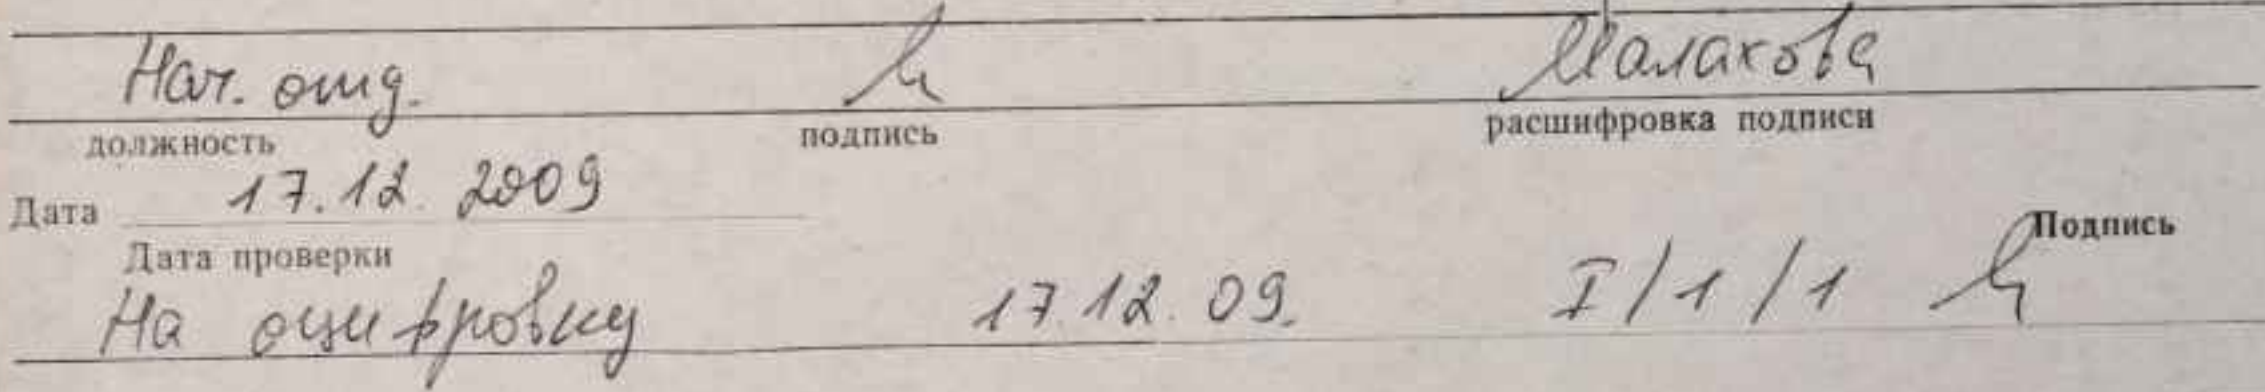 Нач. отд. Малахова
должность подпись расшифровка подписи
Дата 17.12.2009
Дата проверки Подпись
На оцифровку 17.12.09. I/1/1